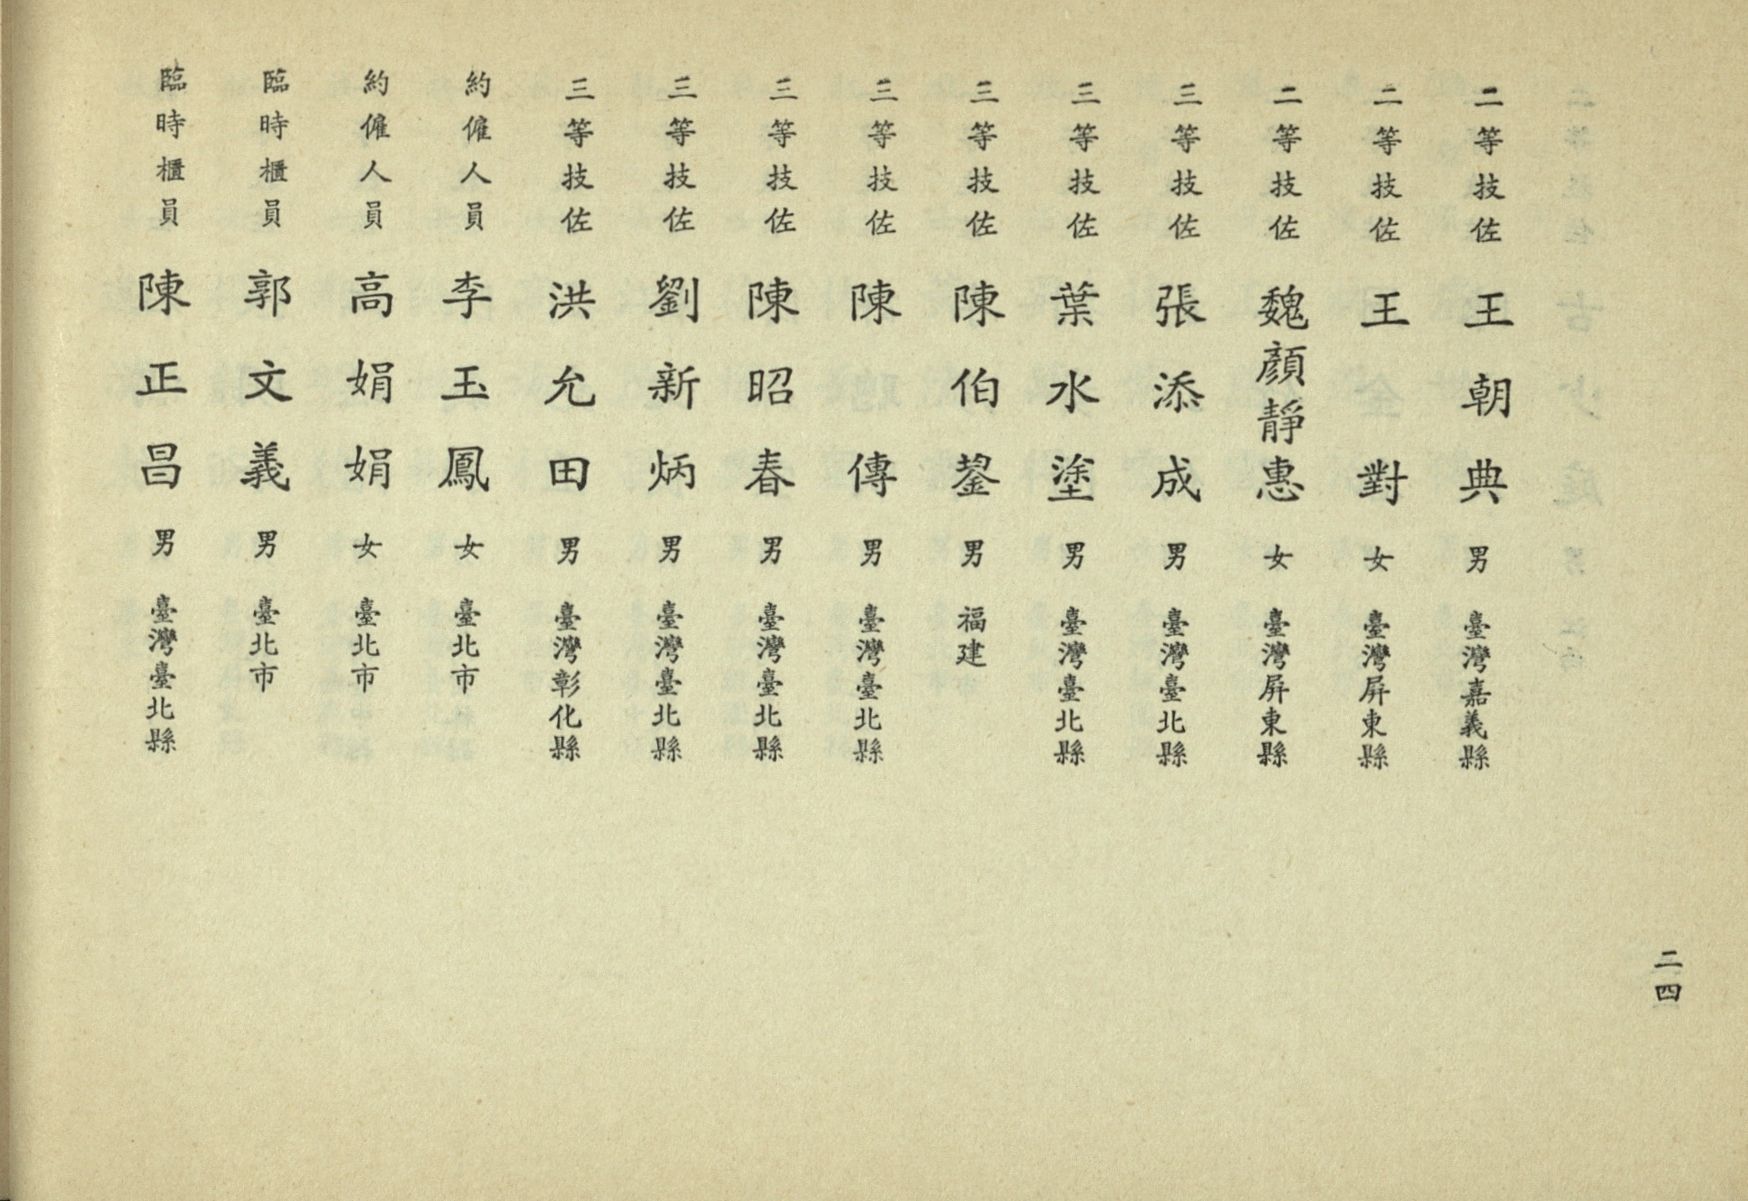 二等技佐 王朝典 男 臺灣嘉義縣
二等技佐 王對 女 臺灣屏東縣
二等技佐 魏顏靜惠 女 臺灣屏東縣
三等技佐 張添成 男 臺灣臺北縣
三等技佐 葉水塗 男 臺灣臺北縣
三等技佐 陳伯鋆 男 福建
三等技佐 陳傳 男 臺灣臺北縣
三等技佐 陳昭春 男 臺灣臺北縣
三等技佐 劉新炳 男 臺灣臺北縣
三等技佐 洪允田 男 臺灣彰化縣
約僱人員 李玉鳳 女 臺北市
約僱人員 高娟娟 女 臺北市
臨時櫃員 郭文義 男 臺北市
臨時櫃員 陳正昌 男 臺灣臺北縣
二四